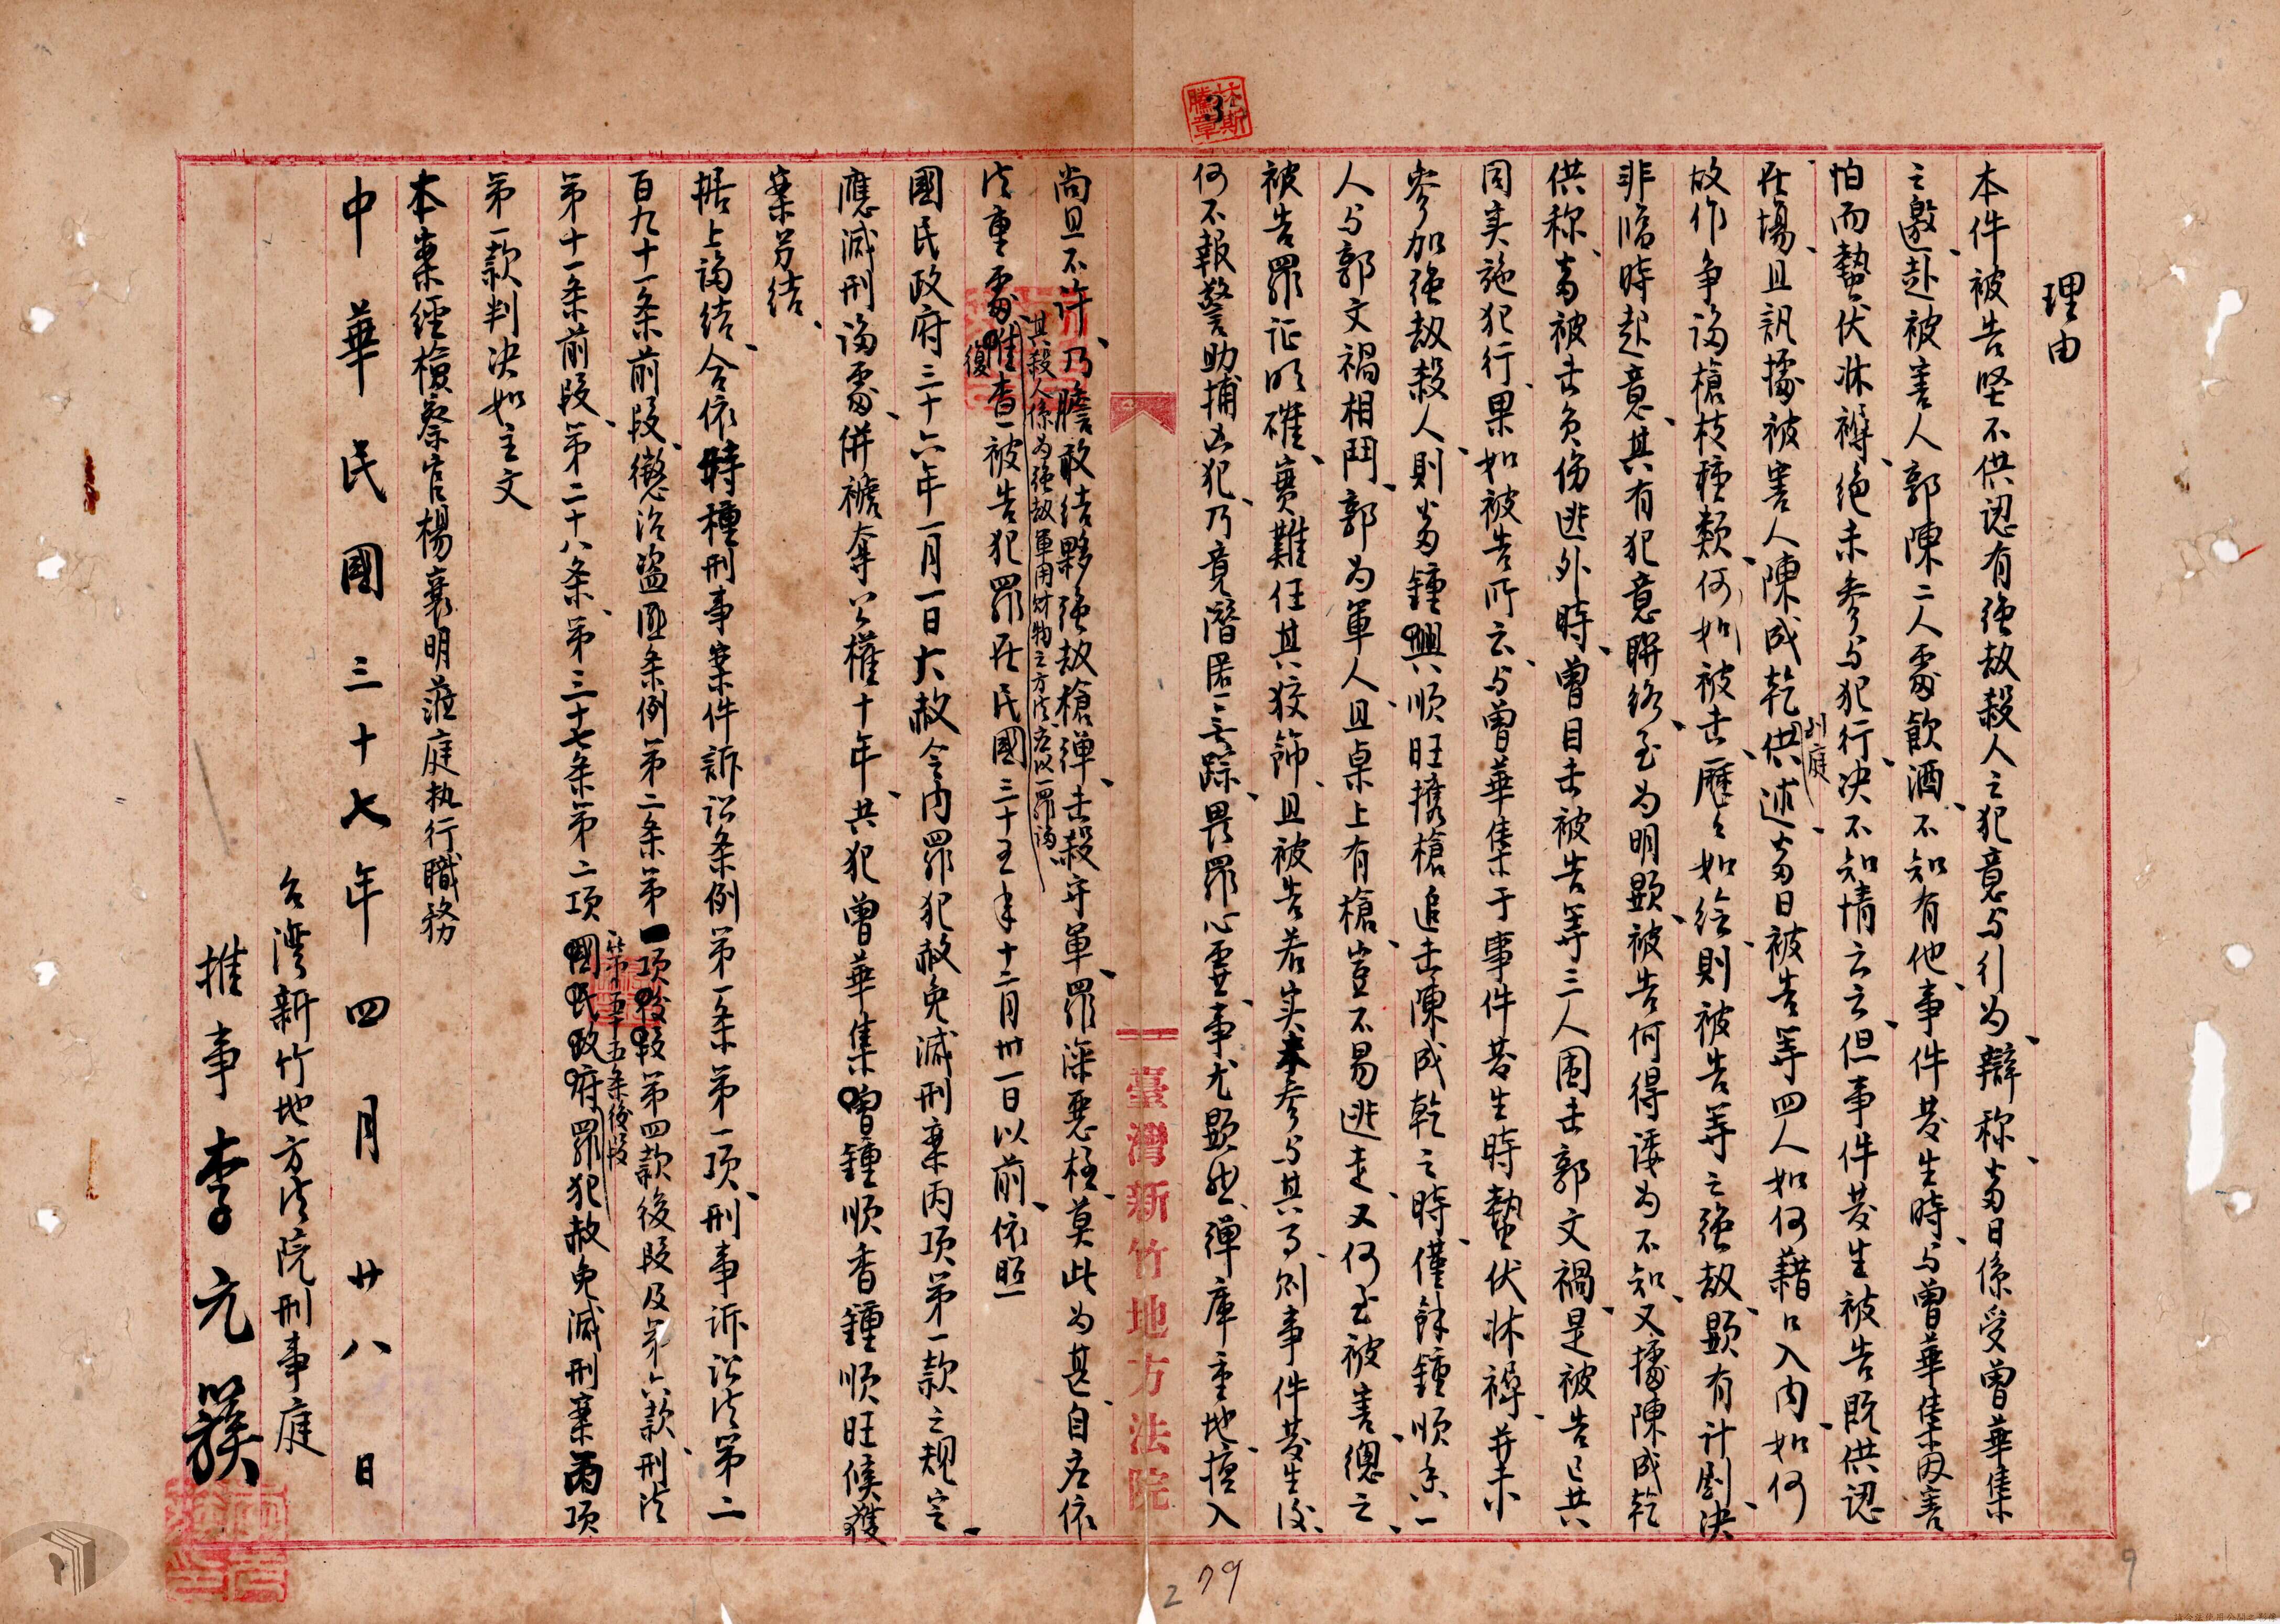 理由
本件被告坚不供認有强劫殺人之犯意与行为、辯称、當日係受曾華集
之邀、赴被害人郭陳二人處飲酒、不知有他、事件發生時、与曾華集因害
怕而蟄伏牀褥、絶未参与犯行、决不知情云云、但事件發生被告既供認
在場、且訊據被害人陳成乾到庭供述、當日被告等四人如何藉口入內、如何
故作争論槍枝種類、何如被击、歷々如绘、則被告等之强劫、顯有计劃、决
非临時起意、其有犯意聯络、至为明顯、被告何得诿为不知、又據陳成乾
供称、當被击负伤逃外時、曾目击被告等三人圍击郭文禍、是被告已共
同实施犯行、果如被告所云、与曾華集于事件發生時蟄伏牀褥、并未
参加强劫殺人、則當鍾興順旺携槍追击陳成乾之時、僅餘鍾順香一
人与郭文禍相鬥、郭为軍人、且桌上有槍、豈不易逃走、又何至被害、總之、
被告罪证明確、實難任其狡飾、且被告若实未参与其事、则事件發生後、
何不報警助捕凶犯、乃竟潛匿無踪、畏罪心虚、事尤顯然、弹庫重地、擅入
臺灣新竹地方法院
尚且不许、乃膽敢结夥强劫槍弹、击殺守軍、罪深惡極、莫此为甚、自应依
其殺人係为强劫軍用財物之方法应以一罪論
法重處、惟復查被告犯罪在民國三十五年十二月卅一日以前、依照
國民政府三十六年一月一日大赦令內罪犯赦免減刑案丙項第一款之规定、
應減刑論處、併褫奪公權十年、共犯曾華集曾鍾順香鍾順旺候獲
案另结、
据上論结、合依特種刑事案件訴訟条例第一条第一項、刑事诉讼法第二
百九十一条前段、懲治盗匪条例第二条第一項後段第四款後段及第六款、刑法
第十一条前段、第二十八条、第三十七条第二項第五十五条後段國民政府罪犯赦免減刑案丙項
第一款判决如主文
本案經檢察官楊襄明蒞庭执行職務
中華民國三十七年四月廿八日
台灣新竹地方法院刑事庭
推事李元簇
79
2
9